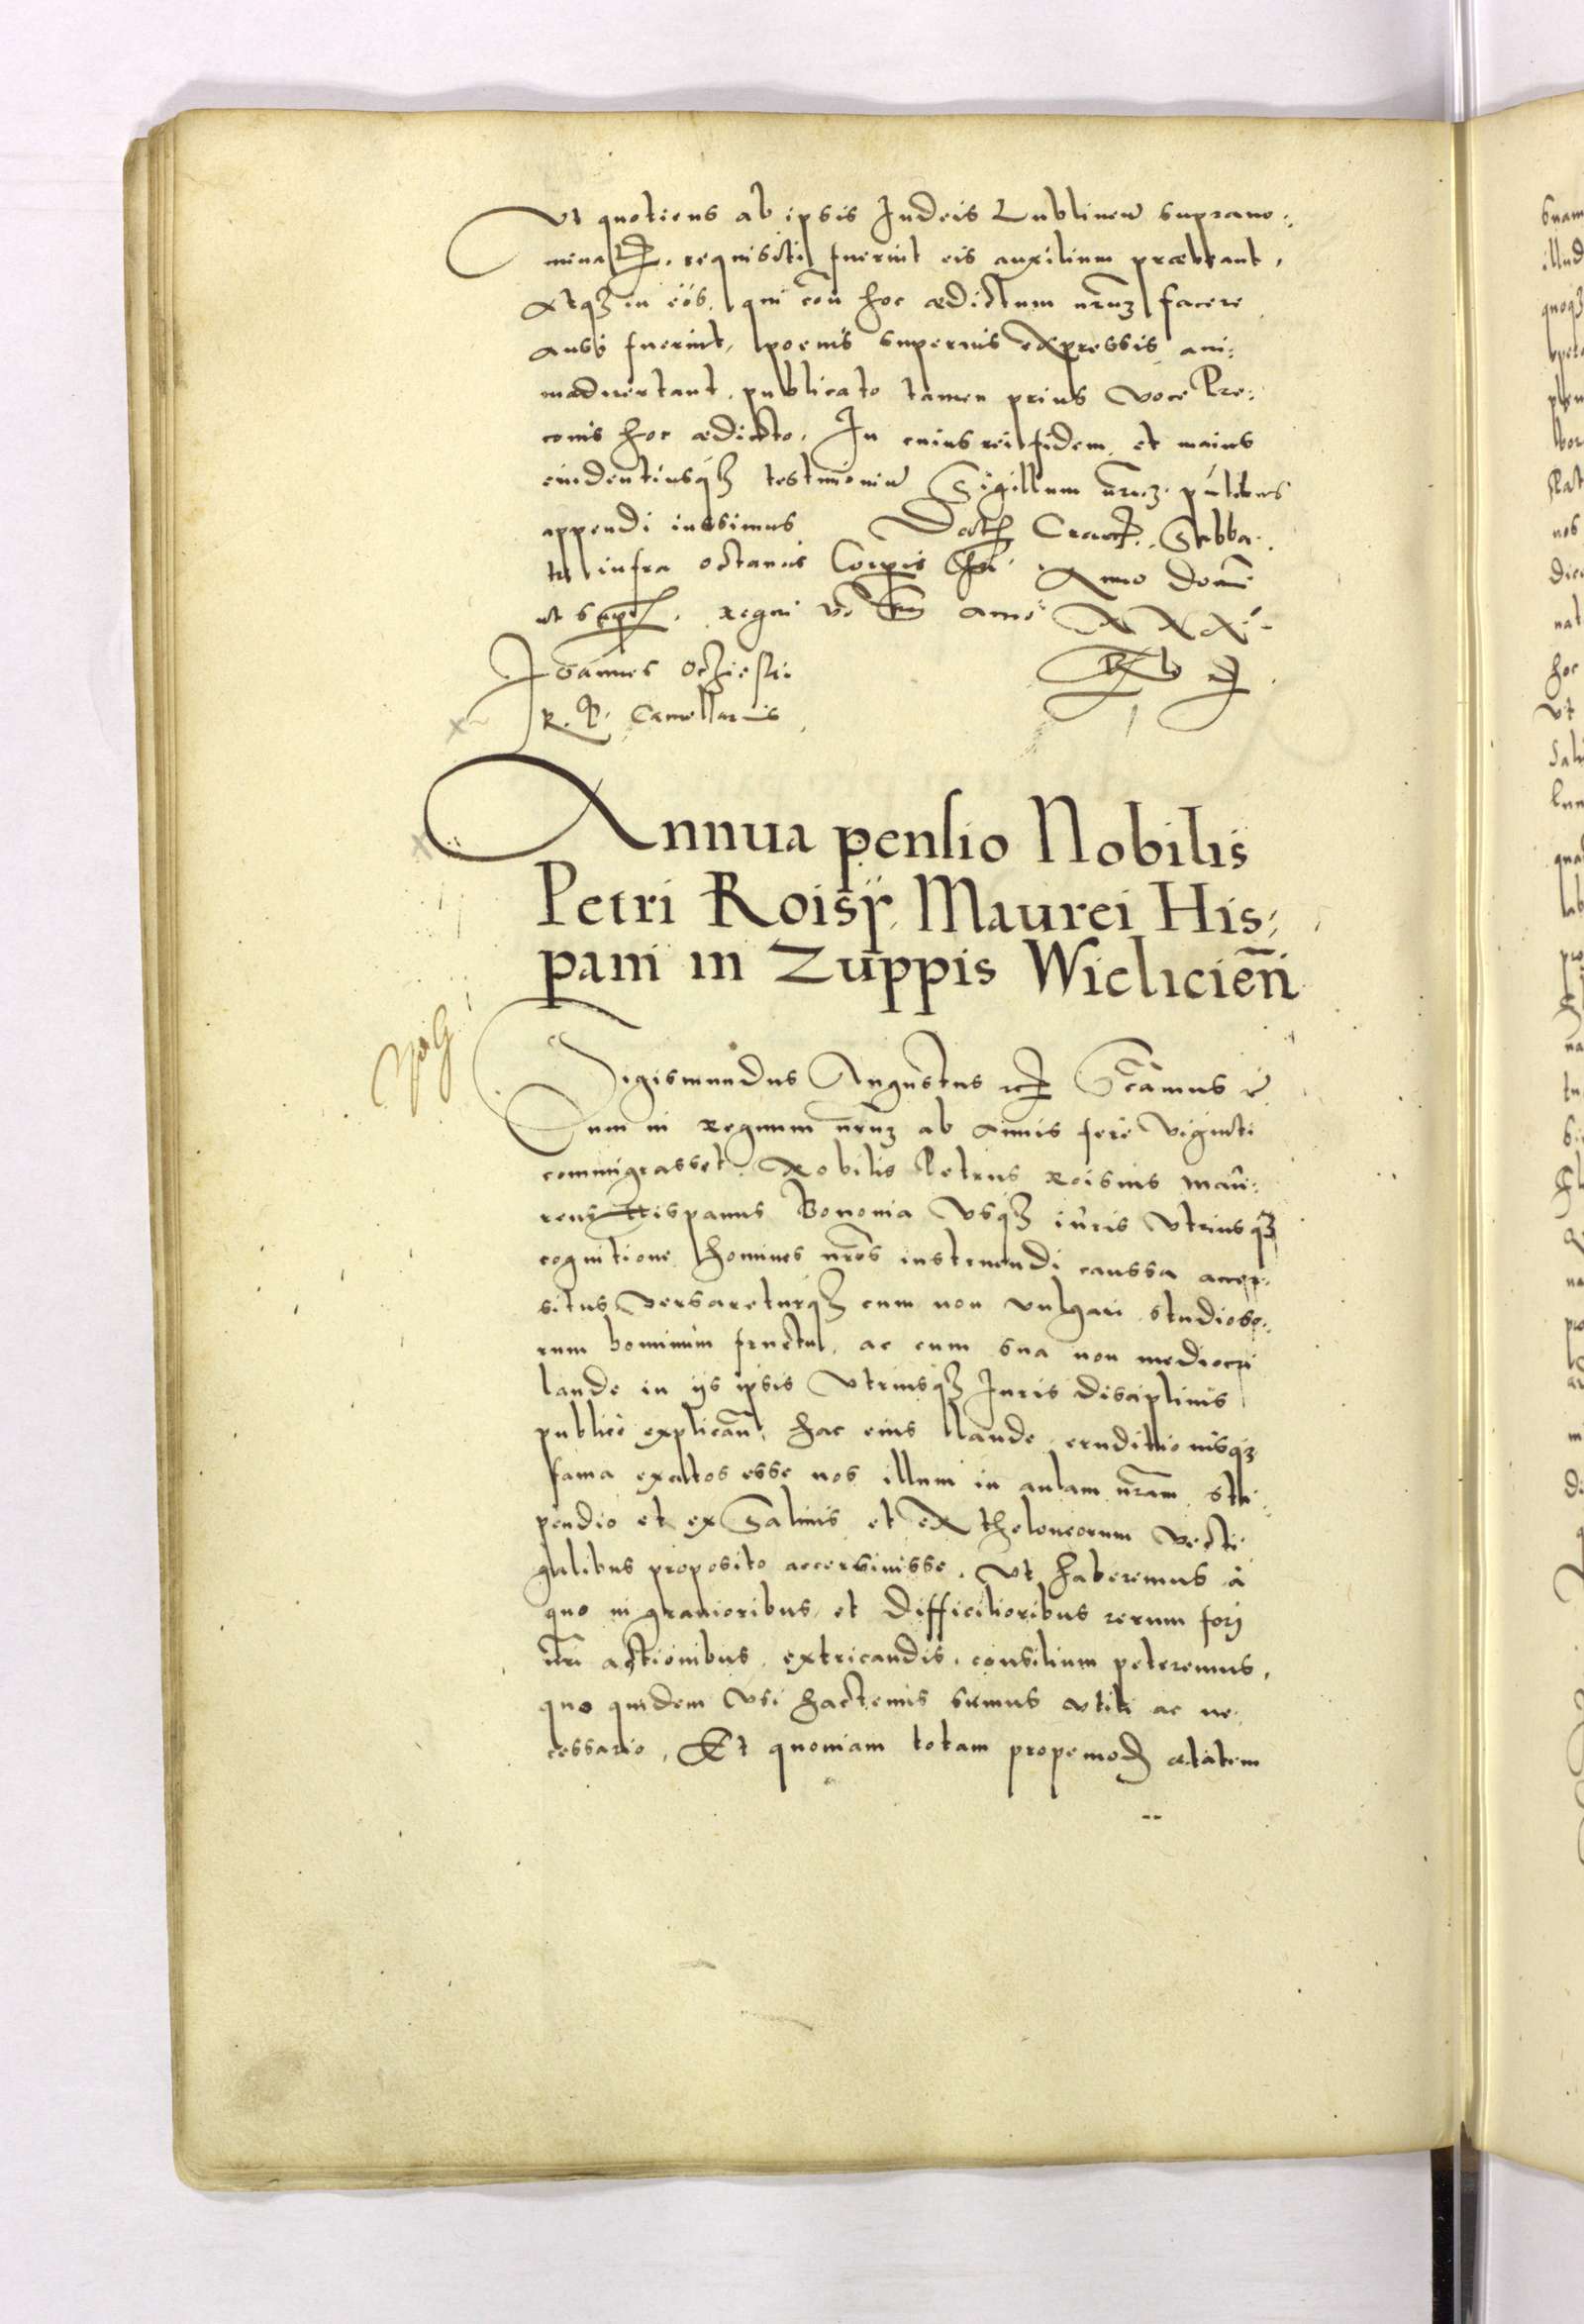 Vt quotiens ab ipsis Iudeis Lublineñ suprano:
mina requisiti fuerint eis auxilium præbeant,
Atqz in eos, qui con̄ hoc ædictum nr̄uz facere
ausi fuerint, poenis superius expressis ani:
maduertant, publicato tamen prius voce Pre:
conis hoc ædicto. In cuius rei fidem et maius
euidentiusqz testimoniũ Sigillum nr̄uz pñtibus
appendi iussimus Dat Crac. Sabba:
to infra octauas Corpis Chri Anno Domi
ut sup. regni vo anno XXXI
Ioannes Oczieski
R. P. Cancellarius
Annua pensio Nobilis
Petri Roisij Maurei His,
pani in Zuppis Wieliciēn
Sigismundus Augustus rc Sc̄amus rc
Cum in regnum nr̄uz ab annis fere viginti
commigrasset Nobilis Petrus Roisius Mau:
reus Hispanus Bononia vsqz iuris vtriusqz
cognitione homines nr̄os instruendi caussa accer:
situs, versareturqz cum non vulgari studioso:
rum hominum fructu, ac cum sua non mediocri
laude in ijs ipsis vtriusqz Iuris disciplinis
publicè explican̄, hac eius laude eruditionisqz
fama exitos esse nos illum in aulam nr̄am sti:
pendio et ex Salinis et ex theloneorum vecti:
galibus proposito accersiuisse, vt haberemus à
quo in grauioribus et difficilioribus rerum forj
nr̄i actionibus extricandis, consilium peteremus,
quo quidem vsi hactenus sumus vtili ac ne:
cessario, Et quoniam totam propemod ætatem